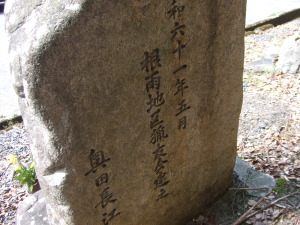 和六十一年五月
根雨地区猟友会建立
奥田長江